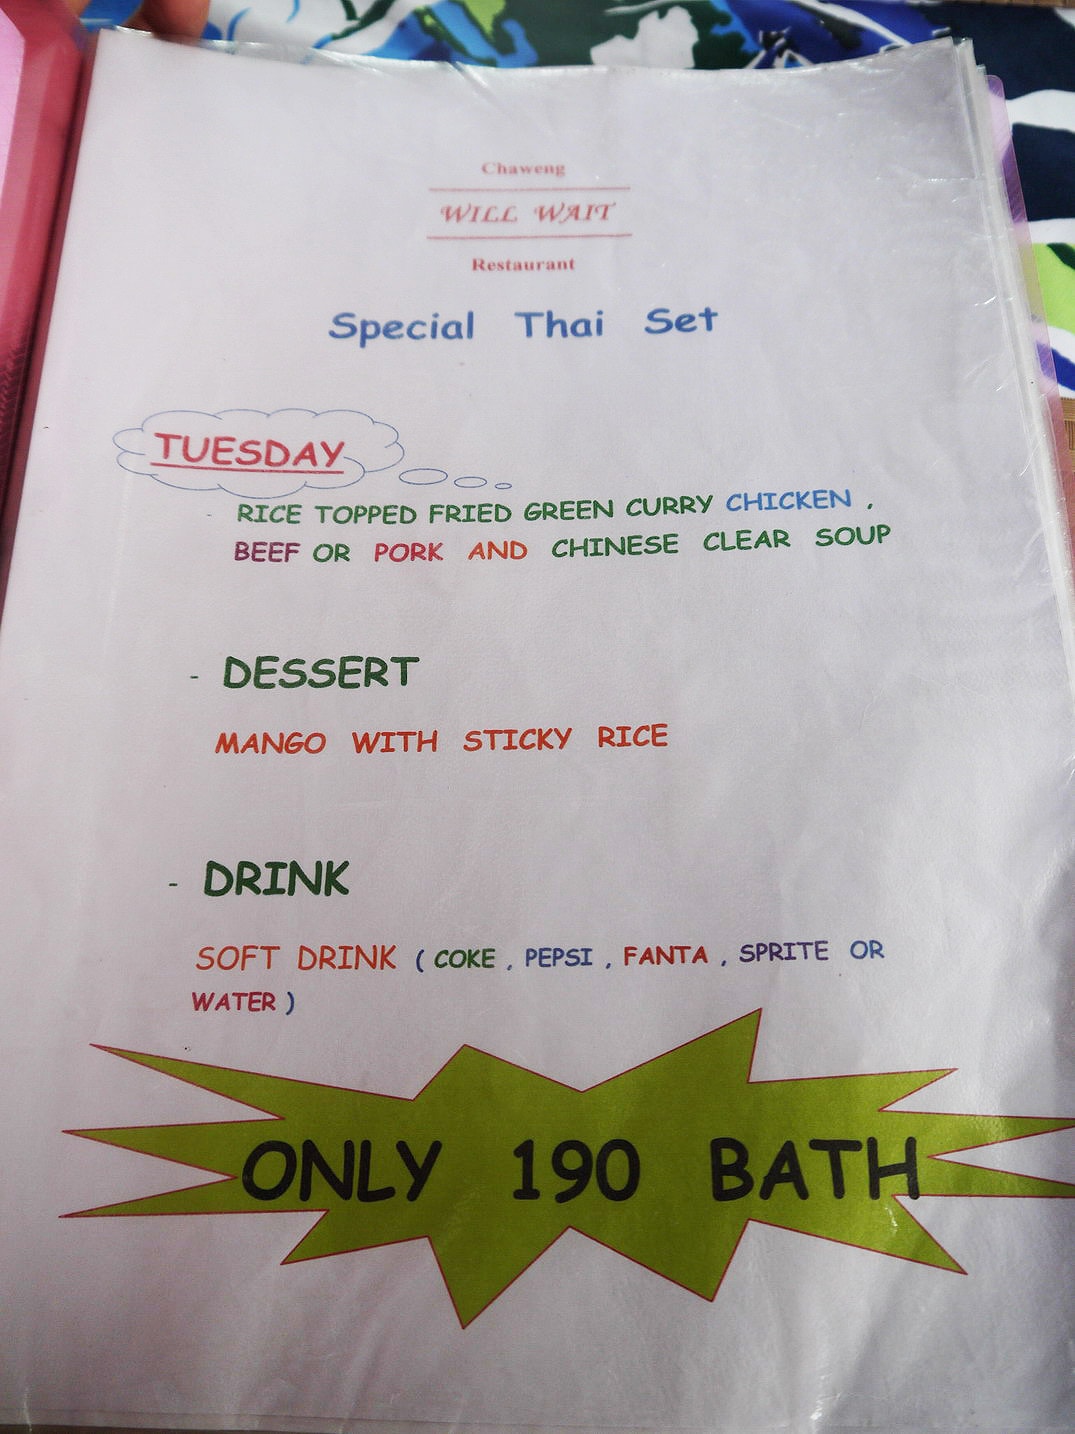 Chaweng
WILL WAIT
Restaurant
Special Thai Set
TUESDAY
- RICE TOPPED FRIED GREEN CURRY CHICKEN ,
BEEF OR PORK AND CHINESE CLEAR SOUP
- DESSERT
MANGO WITH STICKY RICE
- DRINK
SOFT DRINK ( COKE , PEPSI , FANTA , SPRITE OR
WATER )
ONLY 190 BATH